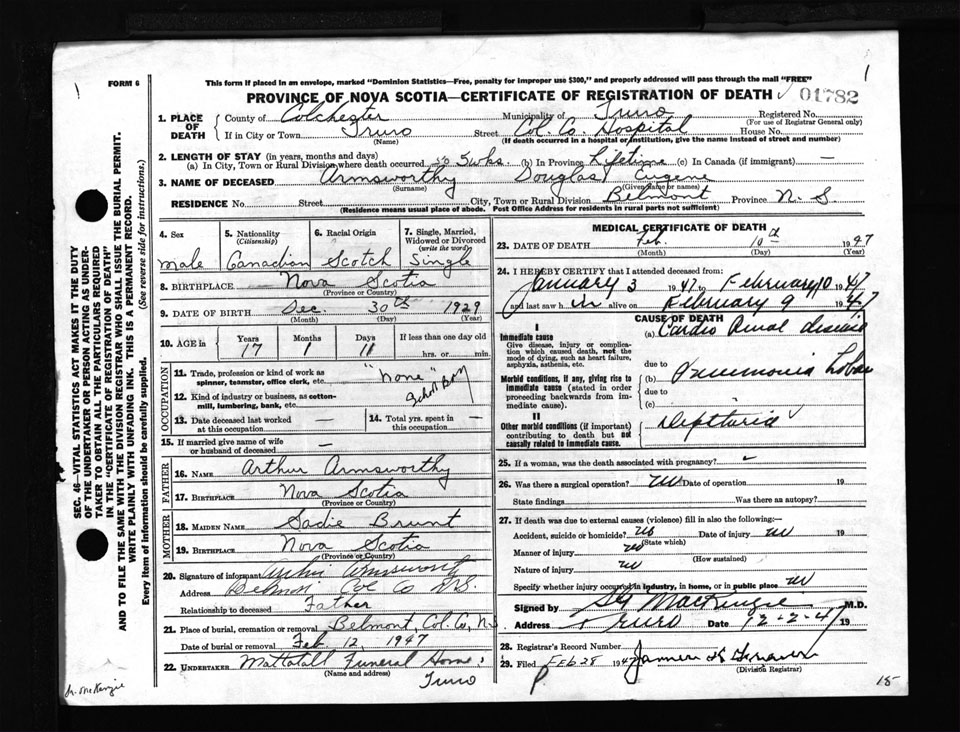 FORM 6
This form if placed in an envelope, marked "Dominion Statistics—Free, penalty for improper use $300," and properly addressed will pass through the mail "FREE"
PROVINCE OF NOVA SCOTIA—CERTIFICATE OF REGISTRATION OF DEATH 01782
SEC. 46—VITAL STATISTICS ACT MAKES IT THE DUTY
OF THE UNDERTAKER OR PERSON ACTING AS UNDER-
TAKER TO OBTAIN ALL THE PARTICULARS REQUIRED
IN THE "CERTIFICATE OF REGISTRATION OF DEATH"
AND TO FILE THE SAME WITH THE DIVISION REGISTRAR WHO SHALL ISSUE THE BURIAL PERMIT.
WRITE PLAINLY WITH UNFADING INK. THIS IS A PERMANENT RECORD.
Every item of information should be carefully supplied. (See reverse side for instructions.)
1. PLACE OF DEATH
County of Colchester Municipality of Truro Registered No.
(For use of Registrar General only)
If in City or Town Truro Street Col. Co. Hospital House No.
(Name) (If death occurred in a hospital or institution, give the name instead of street and number)
2. LENGTH OF STAY (in years, months and days)
(a) In City, Town or Rural Division where death occurred 5 wks. (b) In Province Lifetime (c) In Canada (if immigrant) —
3. NAME OF DECEASED Armsworthy Douglas Eugene
(Surname) (Given Name or names)
RESIDENCE No. Street City, Town or Rural Division Belmont Province N. S
(Residence means usual place of abode. Post Office Address for residents in rural parts not sufficient)
4. Sex
male
5. Nationality
(Citizenship)
Canadian
6. Racial Origin
Scotch
7. Single, Married,
Widowed or Divorced
(write the word)
Single
8. BIRTHPLACE Nova Scotia
(Province or Country)
9. DATE OF BIRTH Dec. 30th 1929
(Month) (Day) (Year)
10. AGE in
Years Months Days If less than one day old
17 1 11 hrs. or min.
OCCUPATION
11. Trade, profession or kind of work as
spinner, teamster, office clerk, etc. "none"
12. Kind of industry or business, as cotton-
mill, lumbering, bank, etc. School Boy
13. Date deceased last worked
at this occupation —
14. Total yrs. spent in
this occupation —
15. If married give name of wife
or husband of deceased —
FATHER
16. NAME Arthur Armsworthy
17. BIRTHPLACE Nova Scotia
(Province or Country)
MOTHER
18. MAIDEN NAME Sadie Brunt
19. BIRTHPLACE Nova Scotia
(Province or Country)
20. Signature of informant Armsworthy
Address Belmont Col Co N.S.
Relationship to deceased Father
21. Place of burial, cremation or removal Belmont, Col. Co, N.S
Date of burial or removal Feb 12 1947
22. UNDERTAKER Mattatall Funeral Home,
(Name and address)
Truro
Dr. McKenzie
MEDICAL CERTIFICATE OF DEATH
23. DATE OF DEATH Feb. 10th 1947
(Month) (Day) (Year)
24. I HEREBY CERTIFY that I attended deceased from:
January 3 1947 to February 10 1947
and last saw him alive on February 9 1947
CAUSE OF DEATH
I
Immediate cause
Give disease, injury or complica-
tion which caused death, not the
mode of dying, such as heart failure,
asphyxia, asthenia, etc.
(a) Cardio Renal disease
due to
Morbid conditions, if any, giving rise to
immediate cause (stated in order
proceeding backwards from im-
mediate cause).
(b) Pneumonia Lobar
due to
(c)
II
Other morbid conditions (if important)
contributing to death but not
causally related to immediate cause.
25. If a woman, was the death associated with pregnancy?
26. Was there a surgical operation? no Date of operation 19
State findings Was there an autopsy?
27. If death was due to external causes (violence) fill in also the following:—
Accident, suicide or homicide? no Date of injury no 19
(State which)
Manner of injury no
(How sustained)
Nature of injury no
Specify whether injury occurred in industry, in home, or in public place no
Signed by MacKenzie M.D.
Address Truro Date 12-2-47 19
28. Registrar's Record Number
29. Filed Feb 28 1947
(Division Registrar)
15